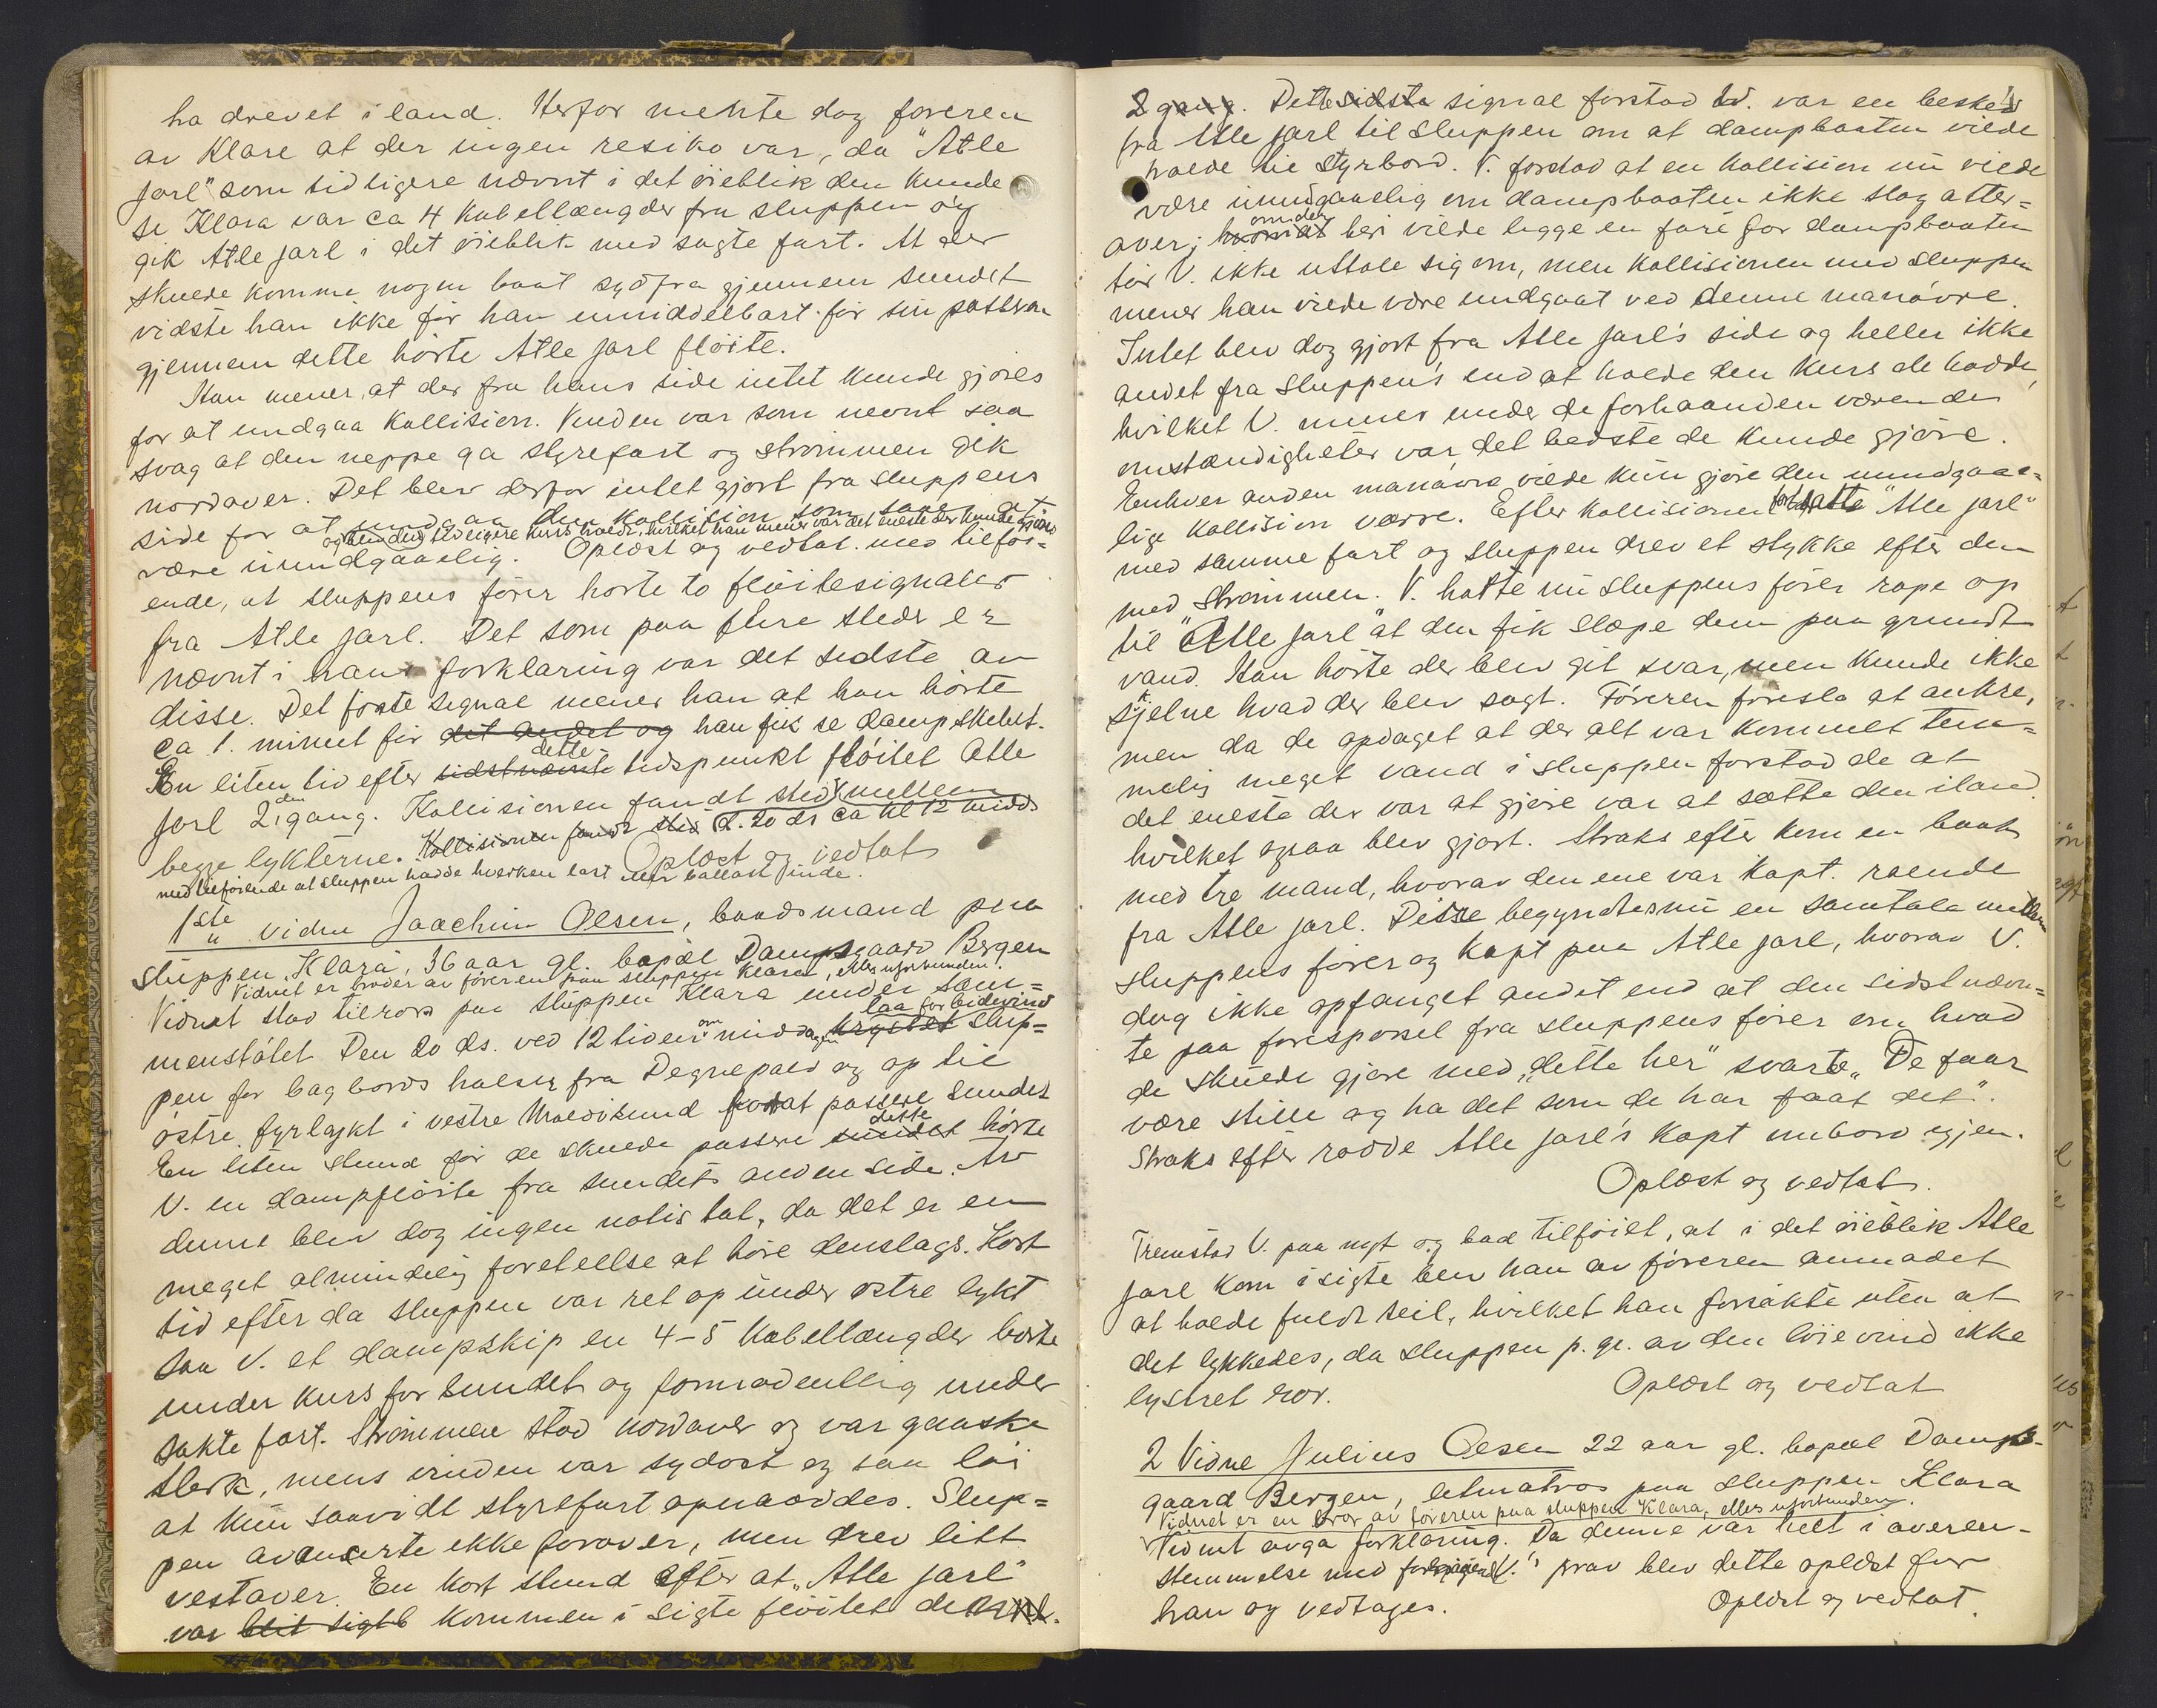 ha drevet i land. Herfor mente dog føreren
av Klara at der ingen resiko var, da "Atle
Jarl" som tidligere nævnt i det øieblik den kunde
se Klara var ca 4 kabellængder fra sluppen og
gik Atle Jarl i det øieblik med sagte fart. At der
skulde komme nogen baat sydfra gjennem sundet
vidste han ikke før han umiddelbart før sin passeren
gjennem dette hørte Atle Jarl fløite.
Han mener, at der fra hans side intet kunde gjøres
for at undgaa kollision. Vinden var som nevnt saa
svag at den neppe ga styrefart og strømmen gik
nordover. Det blev derfor intet gjort fra sluppens
side for at undgaa den kollision som saaes at
og den den tidligere kurs holdt, hvilket han mener var det eneste der kunde gjøres
være uundgaaelig. Oplæst og vedtat med tilføi=
ende, at sluppens fører hørte to fløitesignaler
fra Atle Jarl. Det som paa flere steder er
nævnt i hans forklaring var det sidste av
disse. Det første signal mener han at han hørte
ca 1. minut før det andet og han fik se dampskibet.
En liten tid efter sidstnævnte dette tidspunkt fløitet Atle
Jarl 2den gang. Kollisionen fandt sted mellem
begge lykterne. Kollisionen fandt sted d. 20 ds ca kl 12 midd.
Oplæst og vedtat
med tilføiende at sluppen hadde hverken last eller ballast inde.
1ste vidne Joachim Olsen, baadsmand paa
sluppen Klara, 36 aar gl. bopæl Damsgaard Bergen
Vidnet er broder av føreren paa sluppen Klara, elles uforbunden.
Vidnet stod tilrors paa sluppen Klara under sam=
menstøtet. Den 20 ds. ved 12 tiden om middagen krysset laa for bidevind slup=
pen for bagbords halser fra Degnepold og op til
østre fyrlykt i vestre Moldøsund for at passere sundet
En liten stund før de skulde passere sundet dette hørte
V. en dampfløite fra sundets anden side. Av
denne blev dog ingen notis tat, da det er en
meget almindelig foreteelse at høre denslags. Kort
tid efter da sluppen var ret op under østre lykt
saa V. et dampskip en 4-5 kabellængder borte
under kurs for sundet og formodentlig under
sakte fart. Strømmen stod nordover og var ganske
sterk, mens vinden var sydost og saa løi
at kun saavidt styrefart opnaaddes. Slup=
pen avancerte ikke forover, men drev litt
vestover. En kort stund efter at "Atle Jarl"
var blit sigtb kommen i sigte fløitet denne.
2 gang. Dette sidste signal forstod V. var en besked
fra Atle Jarl til sluppen om at dampbaaten vilde
holde til styrbord. V. forstod at en kollision nu vilde
være uundgaaelig om dampbaaten ikke slog akter=
over; hvorvidt om der heri vilde ligge en fare for dampbaaten
tør V. ikke uttale sig om, men kollisionen med sluppen
mener han vilde være undgaat ved denne manøvre.
Intet blev dog gjort fra Atle Jarl's side og heller ikke
andet fra sluppen's end at holde den kurs de hadde,
hvilket V. mener under de forhaanden værende
omstændigheter var det bedste de kunde gjøre.
Enhver anden manøvre vilde kun gjøre den uundgaae=
lige kollision værre. Efter kollisionen fortsatte "Atle Jarl"
med samme fart og sluppen drev et stykke efter den
med strømmen. V. hørte nu sluppens fører rope op
til "Atle Jarl" at den fik slæpe dem paa grundt
vand. Han hørte der blev git svar, men kunde ikke
skjelne hvad der blev sagt. Føreren foreslo at ankre,
men da de opdaget at der alt var kommet tem=
melig meget vand i sluppen forstod de at
det eneste der var at gjøre var at sætte den iland
hvilket ogsaa blev gjort. Straks efter kom en baat
med tre mand, hvorav den ene var kapt. roende
fra Atle Jarl. Disse begyndtes nu en samtale mellem
sluppens fører og kapt paa Atle Jarl, hvorav V.
dog ikke opfanget andet end at den sidstnævn=
te paa forespørsel fra sluppens fører om hvad
de skulde gjøre med "dette her" svarte "De faar
være stille og ha det som de har faat det".
Straks efter rodde Atle Jarl's kapt ombord igjen.
Oplæst og vedtat.
Fremstod V. paa nyt og bad tilføiet, at i det øieblik Atle
Jarl kom i sigte blev han av føreren anmodet
at holde fuldt seil, hvilket han forsøkte uten at
det lykkedes, da sluppen p. gr. av den løie vind ikke
lystret ror. Oplæst og vedtat
2 Vidne Julius Olsen 22 aar gl. bopæl Dams-
gaard Bergen, letmatros paa sluppen Klara
Vidnet er en bror av føreren paa sluppen Klara, elles uforbunden.
Vidnet avga forklaring. Da denne var helt i overen-
stemmelse med foregaaende V.'s prov blev dette oplæst for
han og vedtages. Oplæst og vedtat.